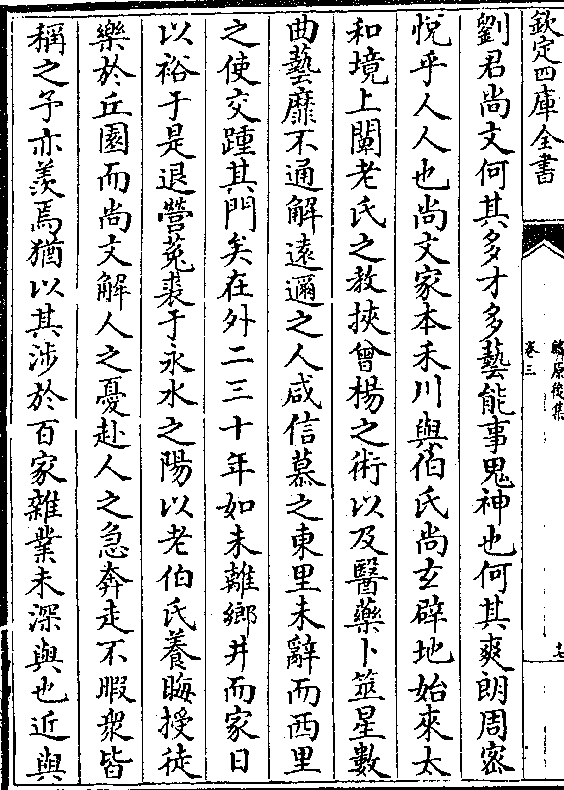 欽定四庫全書
麟原後集
卷三
劉君尚文何其多才多藝能事鬼神也何其爽朗周密
悅乎人人也尚文家本禾川與伯氏尚玄辟地始來太
和境上闡老氏之教挾曾楊之術以及醫藥卜筮星數
曲藝靡不通解遠邇之人咸信慕之東里未辭而西里
之使交踵其門矣在外二三十年如未離鄉井而家日
以裕于是退營菟裘于永水之陽以老伯氏養晦授徒
樂於丘園而尚文解人之憂赴人之急奔走不暇衆皆
稱之予亦羨焉猶以其涉於百家雜業未深與也近與